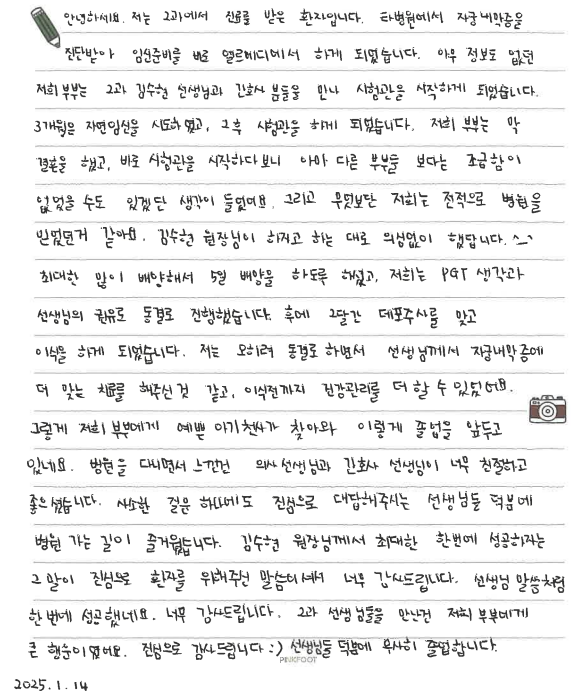 안녕하세요. 저는 2과에서 진료를 받은 환자입니다. 타병원에서 자궁내막증을
진단받아 임신준비를 바로 엘르메디에서 하게 되었습니다. 아무 정보도 없던
저희 부부는 2과 김수현 선생님과 간호사 분들을 만나 시험관을 시작하게 되었습니다.
3개월은 자연임신을 시도하였고, 그 후 시험관을 하게 되었습니다. 저희 부부는 막
결혼을 했고, 바로 시험관을 시작하다보니 아마 다른 부부들 보다는 조급함이
없었을 수도 있겠단 생각이 들었어요. 그리고 무엇보단 저희는 전적으로 병원을
믿었던거 같아요. 김수현 원장님이 하자고 하는 대로 의심없이 했답니다. ^_^
최대한 많이 배양해서 5일 배양을 하도록 해주셨고, 저희는 PGT 생각과
선생님의 권유로 동결로 진행했습니다. 후에 2달간 데포주사를 맞고
이식을 하게 되었습니다. 저는 오히려 동결로 하면서 선생님께서 자궁내막증에
더 맞는 치료를 해주신것 같고, 이식전까지 건강관리를 더 할 수 있었어요.
그렇게 저희 부부에게 예쁜 아기천사가 찾아와 이렇게 졸업을 앞두고
있네요. 병원을 다니면서 느낀건 의사선생님과 간호사 선생님이 너무 친절하고
좋으셨습니다. 사소한 질문 하나에도 진심으로 대답해주시는 선생님들 덕분에
병원 가는 길이 즐거웠습니다. 김수현 원장님께서 최대한 한번에 성공하자는
그 말이 진심으로 환자를 위해주신 말씀이셔서 너무 감사드립니다. 선생님 말씀처럼
한번에 성공했네요. 너무 감사드립니다. 2과 선생님들을 만난건 저희 부부에게
큰 행운이었어요. 진심으로 감사드립니다 :) 선생님들 덕분에 무사히 졸업합니다.
PINKFOOT
2025. 1. 14